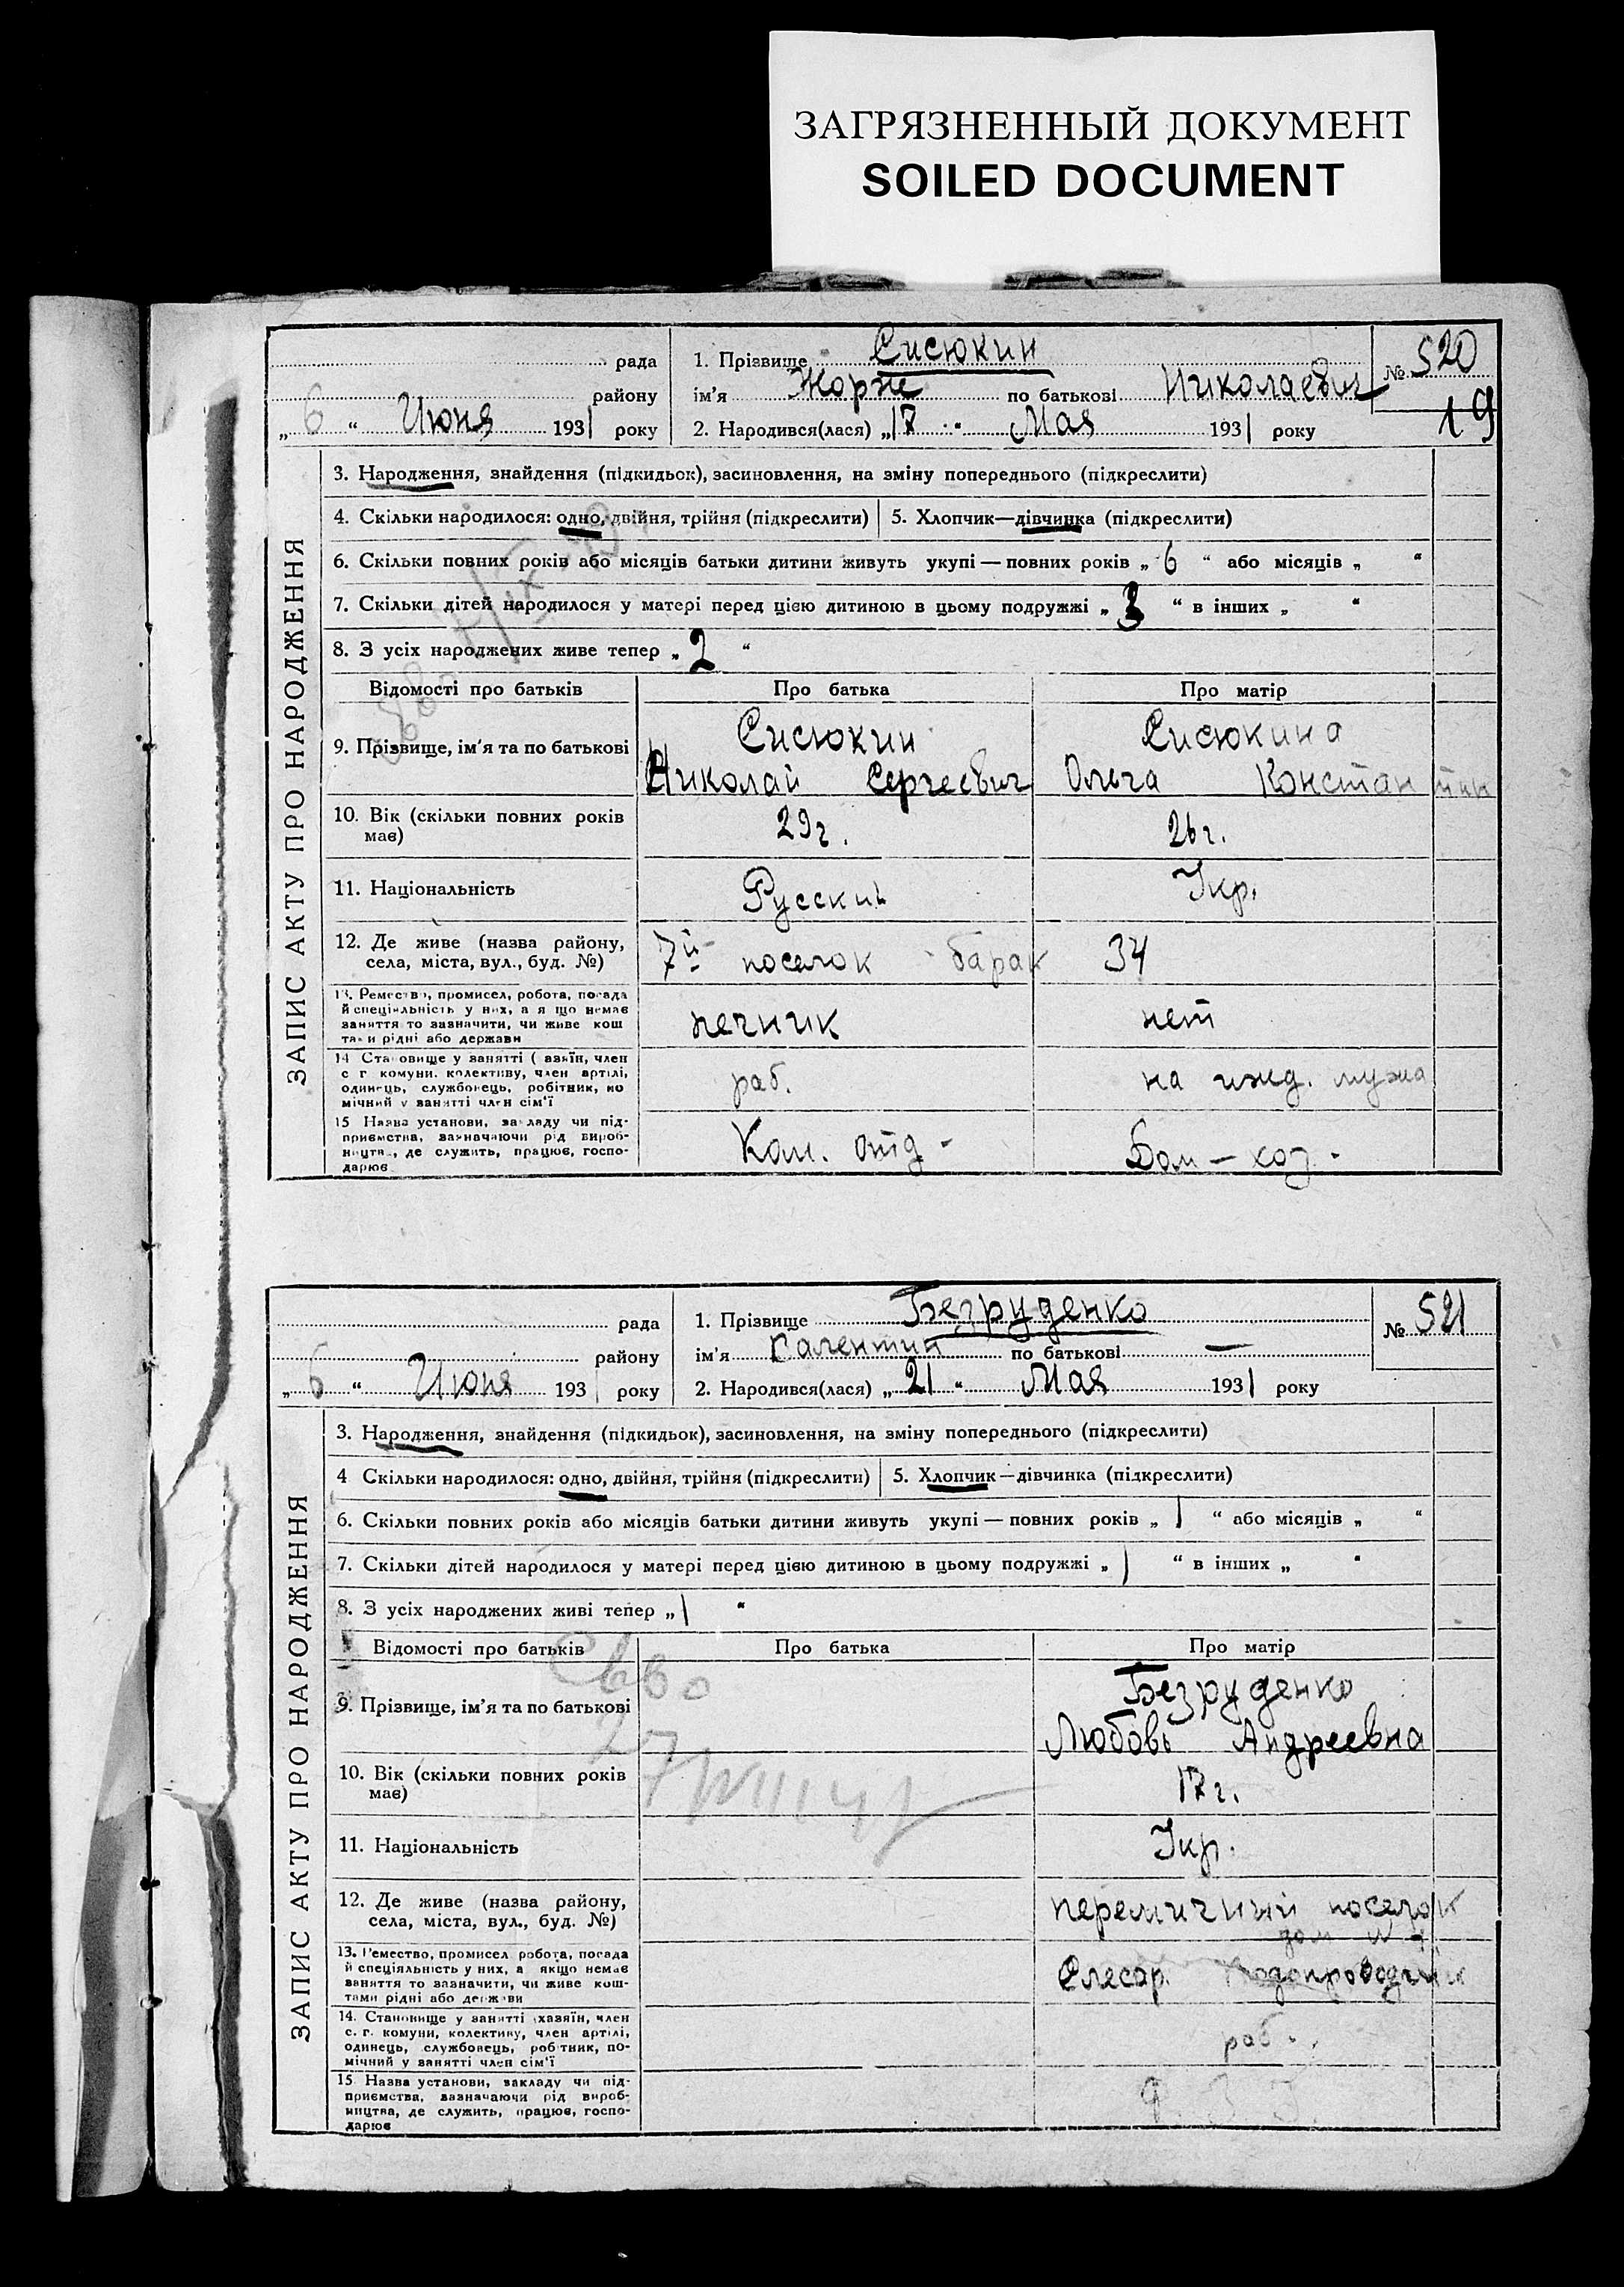 ЗАГРЯЗНЕННЫЙ ДОКУМЕНТ
SOILED DOCUMENT
рада
району
„ 6 “ Июня 1931 року
1. Прізвище Сисюкин
ім'я Жорже по батькові Николаевич
2. Народився(лася) „17 “ Мая 1931 року
№ 520
19
ЗАПИС АКТУ ПРО НАРОДЖЕННЯ
3. Народження, знайдення (підкидьок), засиновлення, на зміну попереднього (підкреслити)
4. Скільки народилося: одно, двійня, трійня (підкреслити) 5. Хлопчик—дівчинка (підкреслити)
6. Скільки повних років або місяців батьки дитини живуть укупі — повних років „ 6 “ або місяців „ “
7. Скільки дітей народилося у матері перед цією дитиною в цьому подружжі „ 3 “ в інших „ “
8. З усіх народжених живе тепер „ 2 “
Відомості про батьків Про батька Про матір
9. Прізвище, ім'я та по батькові
Сисюкин Сисюкина
Николай Сергеевич Ольга Константин
10. Вік (скільки повних років має) 29 г. 26 г.
11. Національність Русский Укр.
12. Де живе (назва району, села, міста, вул., буд. №) 7й поселок барак 34
13. Ремество, промисел, робота, посада
й спеціяльність у них, а якщо немає
заняття то зазначити, чи живе кош
тами рідні або держави
печник нет
14 Становище у занятті (хазяїн, член
с г комуни, колективу, член артілі,
одинець, службовець, робітник, по
мічний у занятті член сім'ї
раб. на ижд. мужа
15 Назва установи, закладу чи під-
приємства, зазначаючи рід вироб-
ництва, де служить, працює, госпо-
дарює
Ком. отд - Дом - хоз.
рада
району
„ 6 “ Июня 193 року
1. Прізвище Безруденко
ім'я Валентин по батькові —
2. Народився(лася) „ 21 “ Мая 1931 року
№ 521
ЗАПИС АКТУ ПРО НАРОДЖЕННЯ
3. Народження, знайдення (підкидьок), засиновлення, на зміну попереднього (підкреслити)
4 Скільки народилося: одно, двійня, трійня (підкреслити) 5. Хлопчик—дівчинка (підкреслити)
6. Скільки повних років або місяців батьки дитини живуть укупі — повних років „ 1 “ або місяців „ “
7. Скільки дітей народилося у матері перед цією дитиною в цьому подружжі „ 1 “ в інших „ “
8. З усіх народжених живі тепер „ 1 “
Відомості про батьків Про батька Про матір
9. Прізвище, ім'я та по батькові
Безруденко
Любовь Андреевна
10. Вік (скільки повних років має) 17 г.
11. Національність Укр.
12. Де живе (назва району, села, міста, вул., буд. №)
поселок
дом №
13. Ремество, промисел робота, посада
й спеціяльність у них, а якщо немає
заняття то зазначити, чи живе кош-
тами рідні або держави
Слесар. Водопроводчик
14. Становище у занятті (хазяїн, член
с. г. комуни, колективу, член артілі,
одинець, службовець, робітник, по-
мічний у занятті член сім'ї
раб.
15 Назва установи, закладу чи під-
приємства, зазначаючи рід вироб-
ництва, де служить, працює, госпо-
дарює